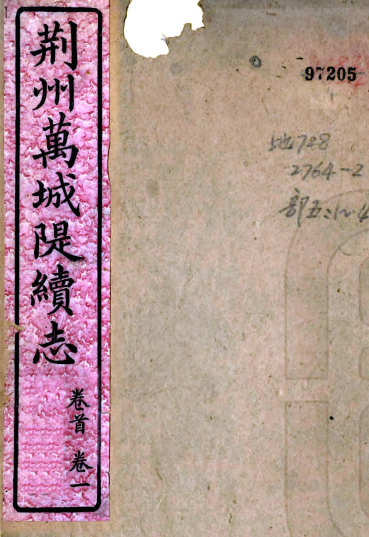 荆州萬城隄續志
卷首 卷一
97205
地728
2764-2